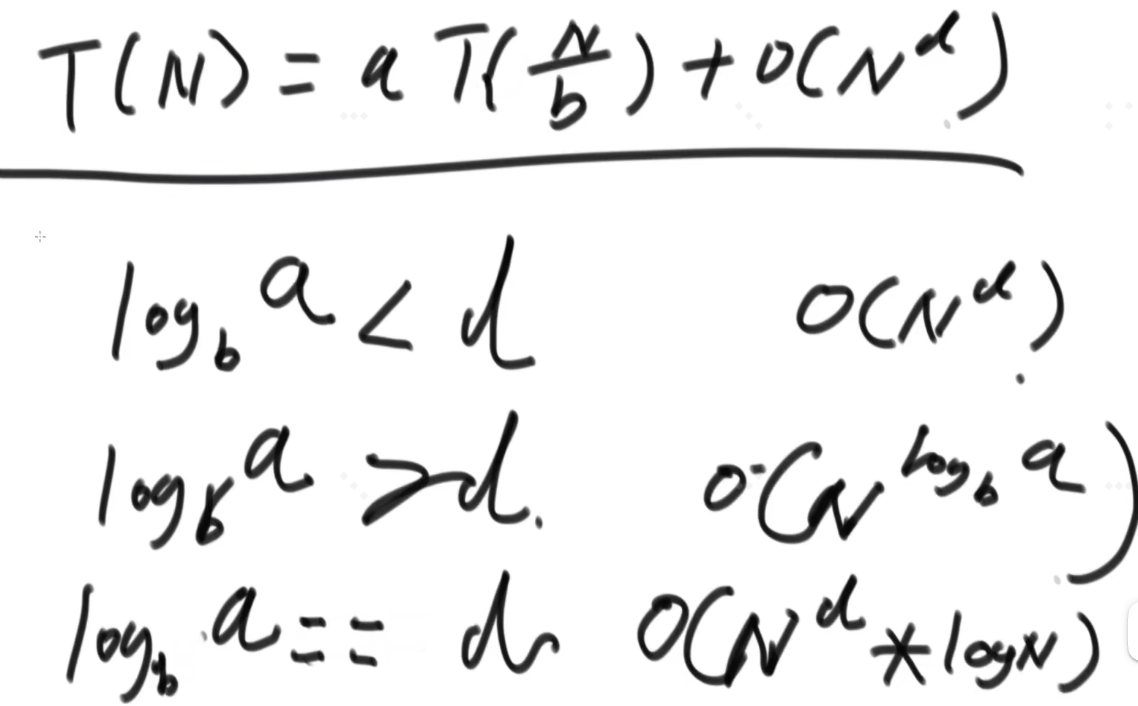 T(N) = a T(N/b) + O(N^d)
log_b a < d O(N^d)
log_b a > d. O(N^log_b a)
log_b a == d O(N^d * logN)